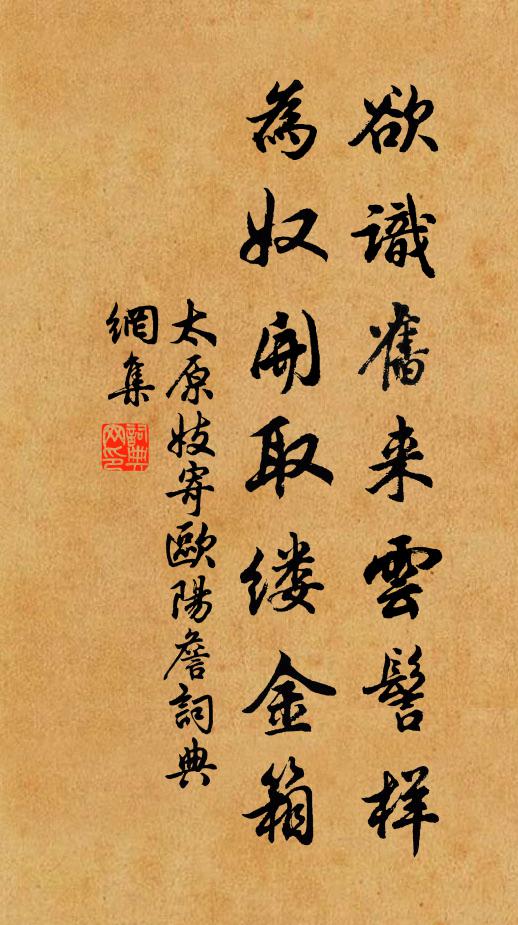 欲識舊来雲髻樣
為奴開取缕金箱
太原妓寄歐陽詹詞典
網集
詞典網印